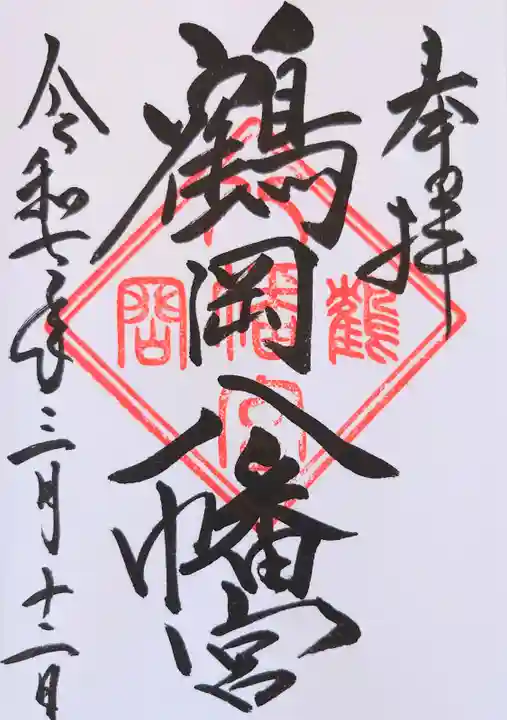 奉拝
鶴岡八幡宮
令和七年三月十二日
鶴
八幡宮
岡